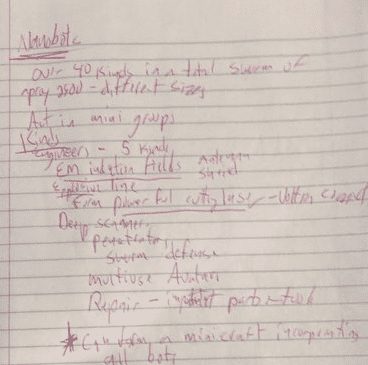 Nanobots
over 40 kinds in a total swarm of
2500 - different sizes
Act in mini groups
Kinds
Engineers - 5 kinds
EM induction fields
Explosive line
Form powerful cutting laser -
Deep scanner
penetrator
swarm defense
multiuse Avatars
Repair - parts -
* Can form a minicraft incorporating
all bots